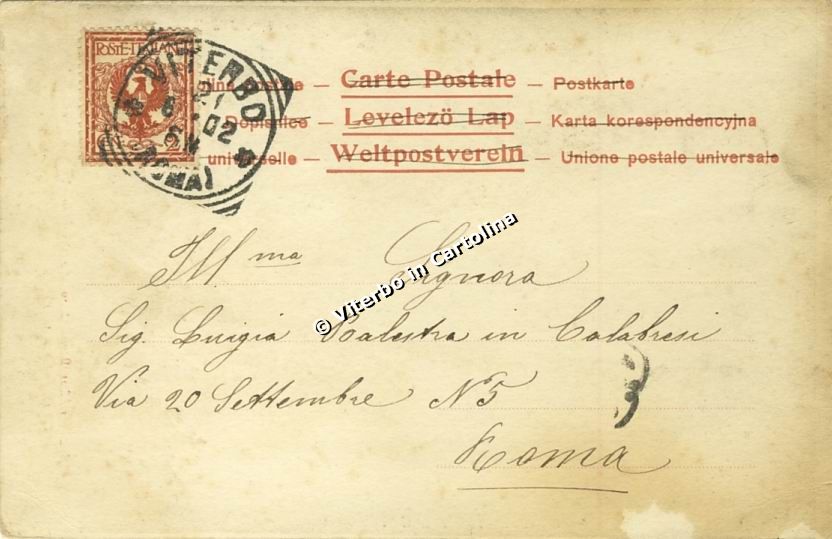 POSTE ITALIANE
VITERBO
21
02
(ROMA)
Carte Postale — Postkarte
Dopisnice — Levelező Lap — Karta korespondencyjna
universelle — Weltpostverein — Unione postale universale
Ill.ma Signora
Sig. Luigia Balestra in Calabresi
Via 20 Settembre N 5
Roma
© Viterbo in Cartolina